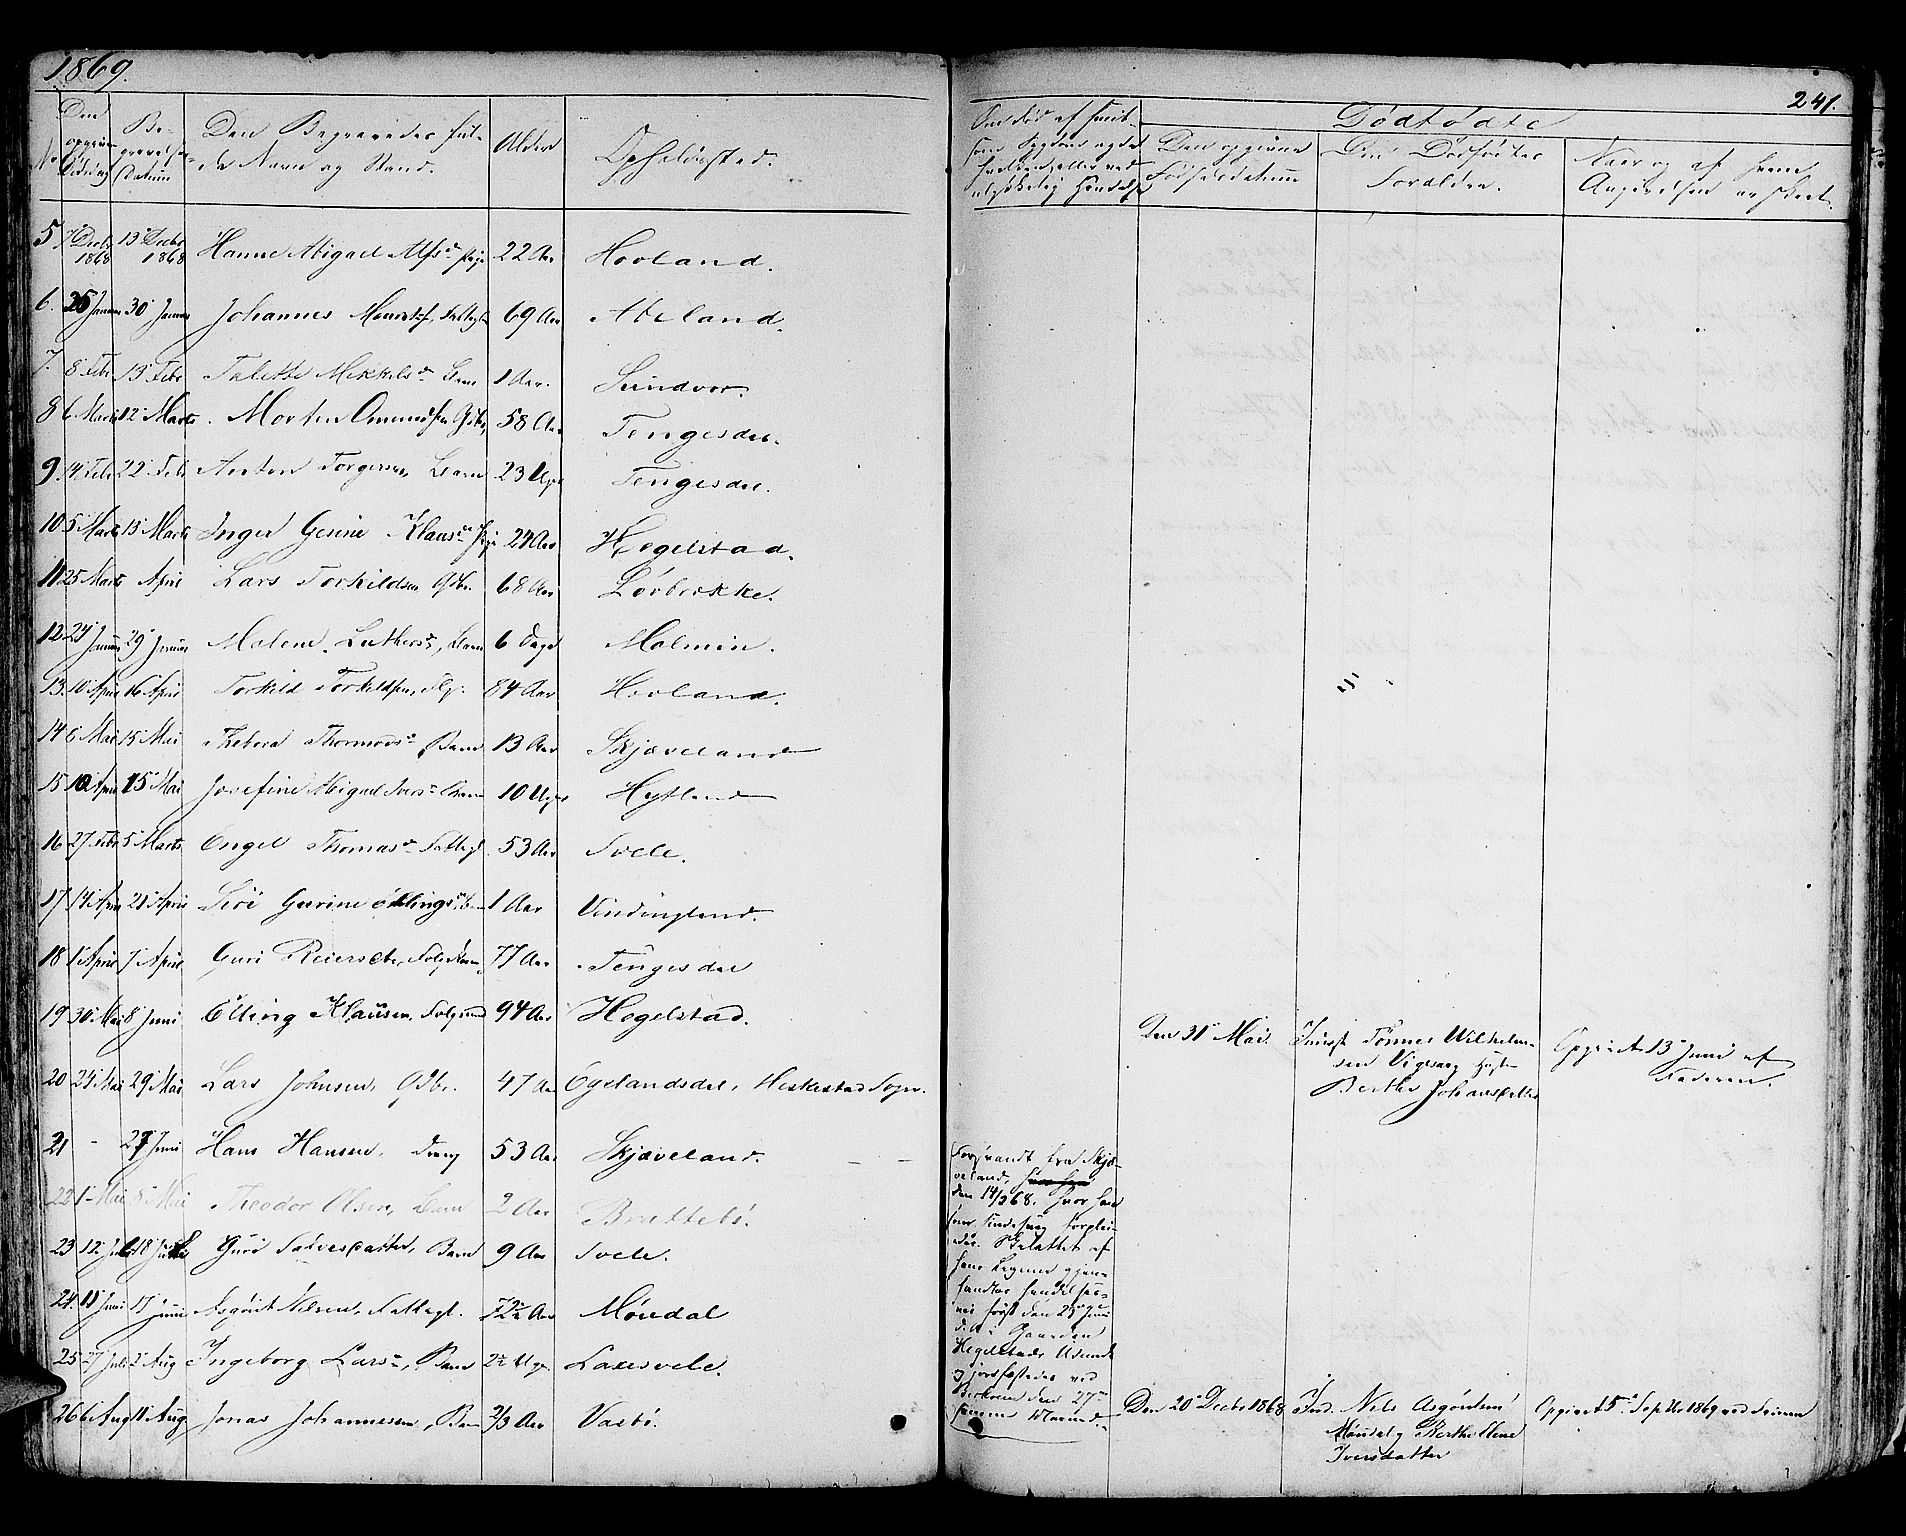 1869.
No
Den opgivne Dødsdag
Begravelses Datum
Den Begravedes fulde Navn og Stand.
Alder
Opholdssted.
5 7 Decbr 1868 13 Decbr 1868 Hanne Abigael Alfsd. Pige 22 Aar Hovland.
6. 25 Januar 30 Januar Johannes 69 Aar Ateland.
7. 8 Febr 13 Febr Talette Mikkelsd. Barn 1 Aar. Sundvor.
8 6 Marts 12 Marts Morten Omundsen Gbr. 58 Aar Tengesdal.
9 14 Febr 22 Febr Anton Torgersen, Barn 23 Uger Tengesdal.
10 5 Marts 13 Marts Inger Gesine Klausd. Pige 24 Aar Hegelstad.
11 25 Marts April Lars Torkildsen Gbr. 68 Aar Løvbrekke.
12 24 Januar 29 Januar Malene Luthersd., Barn 6 Dage Malmin.
13. 10 April 16 April Torkild Torkildsen, Flg. 84 Aar Hovland.
14 6 Mai 15 Mai Thomasd. Barn 13 Aar Skjæveland
15 10 April 15 Mai Josefine Abigael Iversd. Barn 10 Uger Hytland
16 27 Febr 5 Marts Engel Thomasd. Fattigl. 53 Aar Svele.
17 14 April 21 April Siri Gurine Ellingsd. Barn 1 Aar Vindingland.
18 1 April 7 April Guri Reiersdtr, Folgekone, 77 Aar Tengesdal
19 30 Mai 8 Juni Elling Klausen, Folgemand 94 Aar Hegelstad.
20 24 Mai 29 Mai Lars Johnsen, Gdbr. 47 Aar Egelandsdal, Heskestad Sogn.
21 - 27 Juni Hans Hansen, Dreng 53 Aar Skjæveland.
22 1 Mai 8 Mai Theodor Olsen, Barn 2 Aar Brattebø.
23 12 Juli 18 Juli Guri Barn 9 Aar Svele.
24. 11 Juni 17 Juni Asgørit Nilsen, Fattigl. 72 Aar Møndal
25 27 Juli 2 Aug Ingeborg Larsd., Barn 2 Uger Laxesvele.
26 6 Aug 11 Aug Jonas Johannessen, Barn 2/3 Aar Vasbø.
241.
Om død af smitsom Sygdom og da hvilken, eller ved ulykkelig Hændelse
Dødfødte
Den opgivne Fødselsdatum
Den Dødfødtes Forældre.
Naar og af hvem Angivelsen er skeet.
Den 31 Mai. Indst Tønnes Wilhelmsen Vigesaag Hustru Berthe Johansdatter
Opgivet 13 Juni af Faderen.
Forsvandt fra Skjæ-
veland,
den 14/2 68. hvor han
som Sindssyg forplei-
edes. Skelettet af
hans Legeme gjen-
fandtes
først den 25 Juni
d. A. i Gaarden
Hegelstads Udmark
og jordfæstedes ved
den 27
samme Maaned.
Den 20 Decbr 1868 Ind. Nils Asgøritsen Møndal og Berthe Elene Iversdatter
Opgivet 5 Septbr 1869 ved